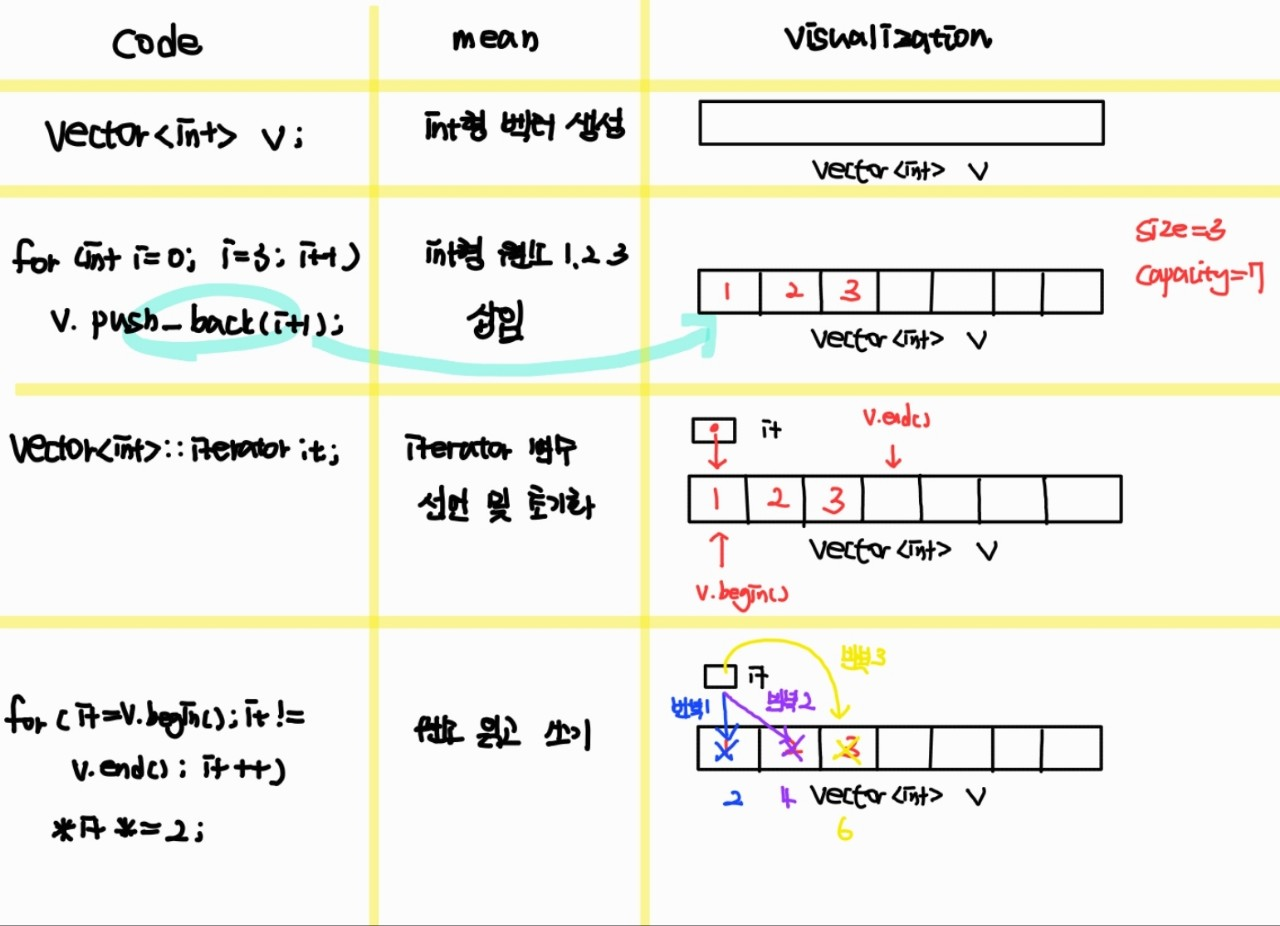 Code
mean
Visualization
Vector<int> v;
int형 벡터 생성
Vector<int> V
for (int i=0; i=3; i++)
v. push_back(i+1);
int형 원소 1.2.3
삽입
1 2 3
Vector<int> V
Size=3
Capacity=7
Vector<int>::iterator it;
iterator 변수
선언 및 초기화
it
v.end()
1 2 3
Vector<int> V
v.begin()
for (it=V.begin(); it!=
v.end(); it++)
*it *=2;
원소 읽고 쓰기
it
반복1
반복2
반복3
3
2 4 Vector<int> V
6